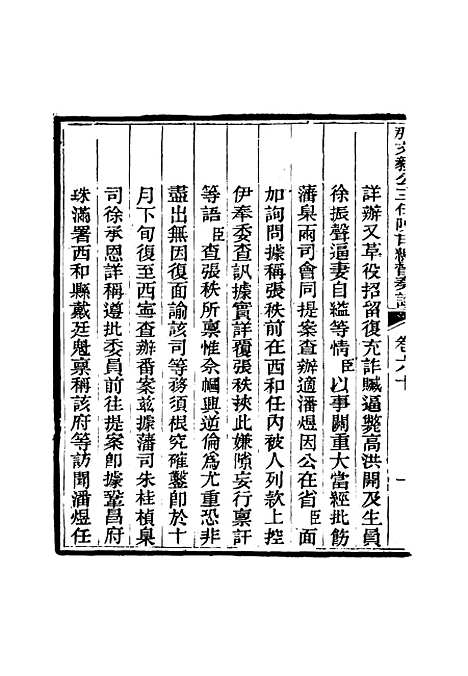 詳辦又草役招留復充詐贓逼斃高洪開及生員
徐振聲逼妻自縊等情臣以事關重大當經批飭
藩臬兩司會同提案查辦適潘煜因公在省臣面
加詢問據稱張秩前在西和任內被人列款上控
伊奉委查訊據實詳覆張秩挾此嫌隙妄行禀訐
等語臣查張秩所禀惟佘幗興逆倫爲尤重恐非
盡出無因復面諭該司等務須根究確鑿卽於十
月下旬復至西寧查辦番案兹據藩司朱桂楨臬
司徐承恩詳稱遵批委員前往提案卽據鞏昌府
珠滿署西和縣戴廷魁禀稱該府等訪聞潘煜任